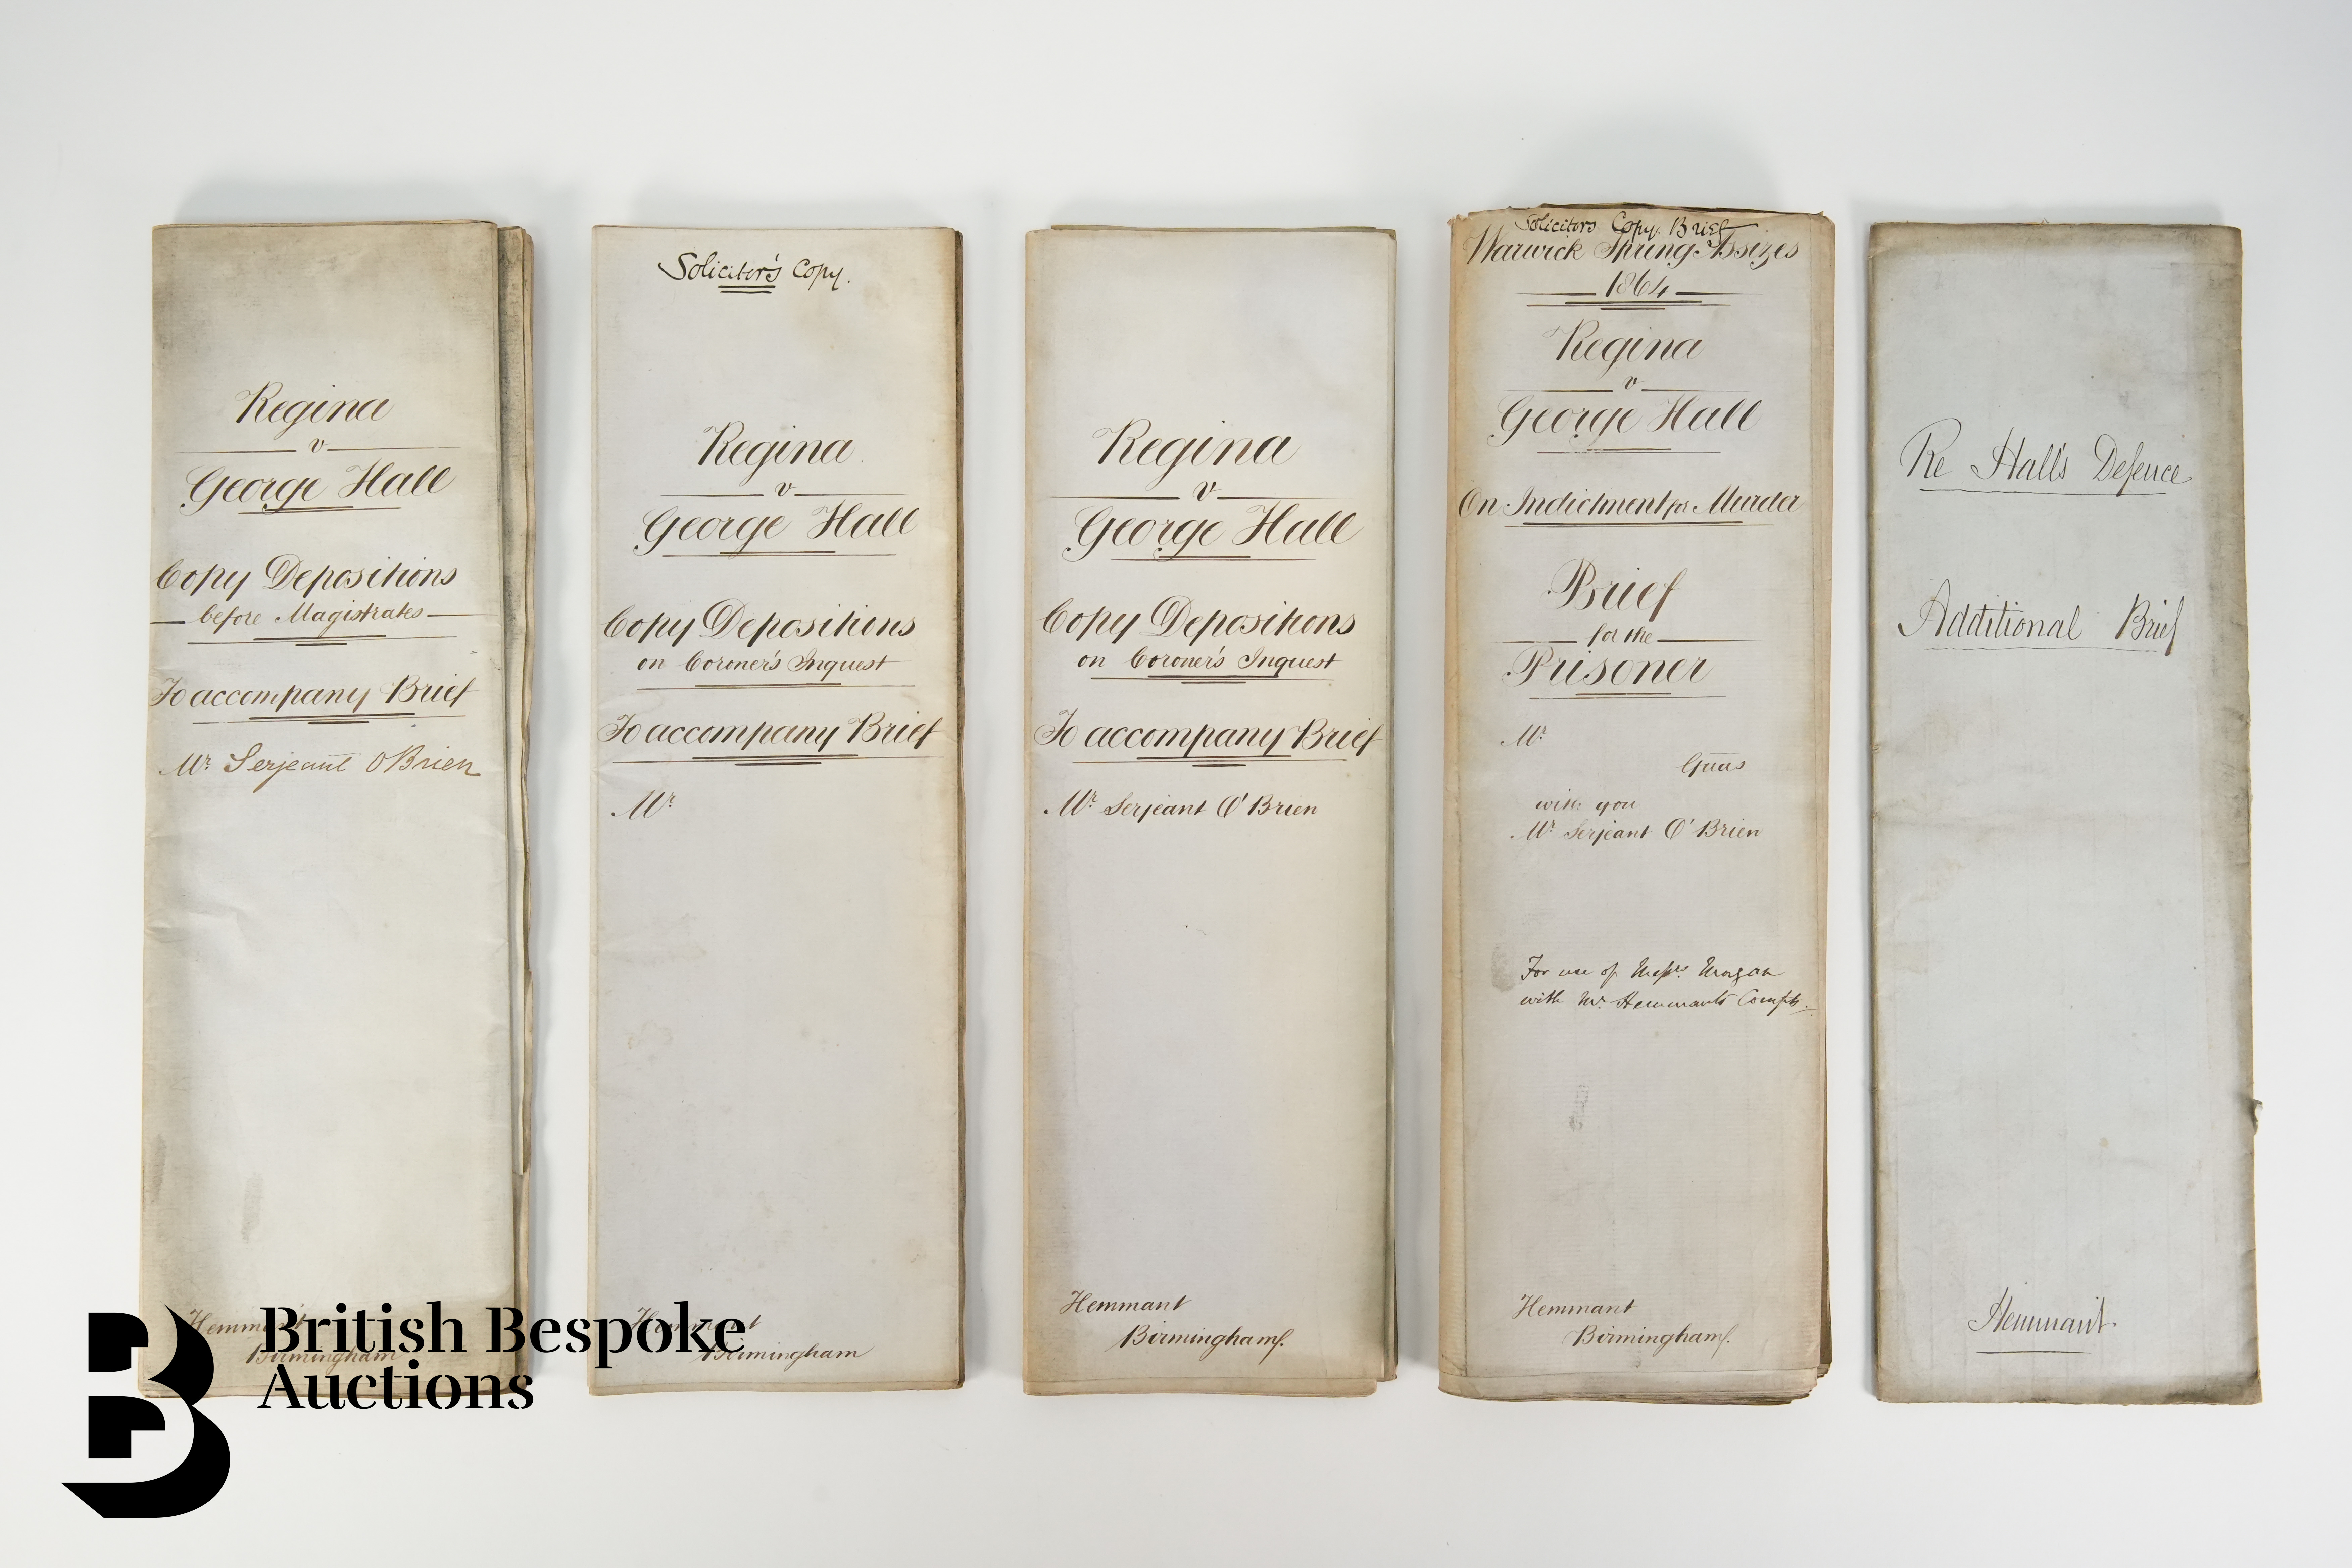 Regina
v
George Hall
Copy Depositions
before Magistrates
To accompany Brief
Mr Serjeant O'Brien
Hemmant
Birmingham
Solicitor's Copy.
Regina
v
George Hall
Copy Depositions
on Coroner's Inquest
To accompany Brief
Mr
Hemmant
Birmingham
Regina
v
George Hall
Copy Depositions
on Coroner's Inquest
To accompany Brief
Mr Serjeant O'Brien
Hemmant
Birmingham
Solicitors Copy Brief
Warwick Spring Assizes
1864
Regina
v
George Hall
On Indictment for Murder
Brief
for the
Prisoner
Mr
Guas
with you
Mr Serjeant O'Brien
For use of Messrs Morgan
with Mr Hemmants Compts.
Hemmant
Birmingham
Re Hall's Defence
Additional Brief
Hemmant
British Bespoke
Auctions